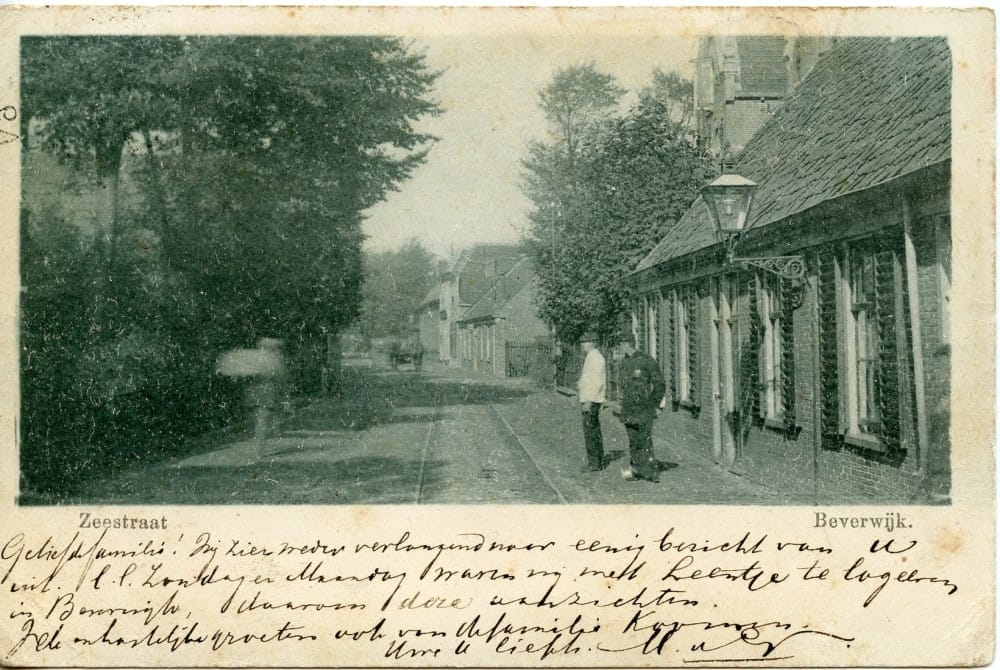 Zeestraat
Beverwijk.
Geliefde familie! Wij zien weder verlangend naar eenig bericht van U
uit. l.l. Zondag en Maandag waren wij met Leentje te logeeren
in Beverwijk, daarom deze aanzichten.
hartelijke groeten ook van de familie Kooman.
Uwe U liefh. M.